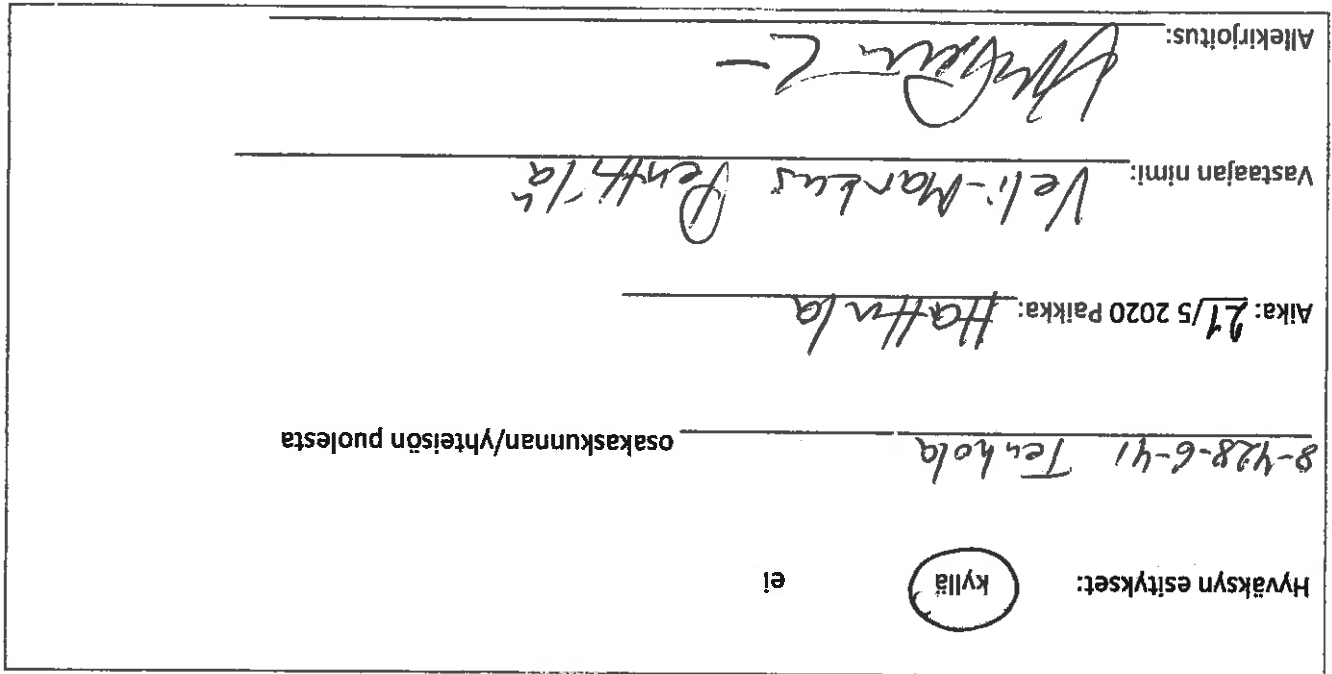 Hyväksyn esitykset: kyllä ei
8-428-6-41 Tenhola osakaskunnan/yhteisön puolesta
Aika: 21/5 2020 Paikka: Hattula
Vastaajan nimi: Veli-Markus Penttilä
Allekirjoitus: